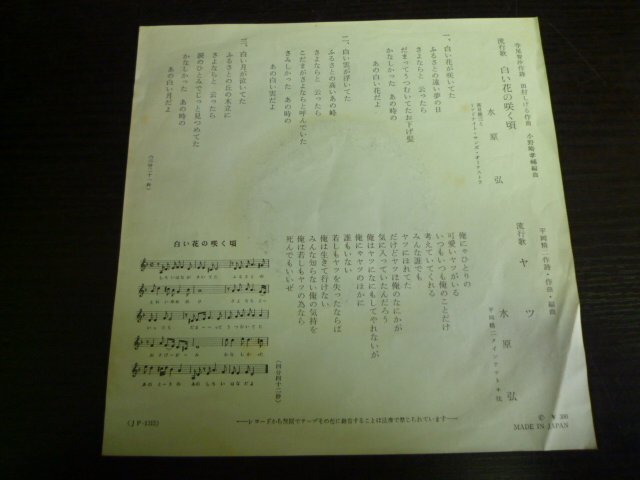 寺尾智沙作詩 田村しげる作曲 小野崎孝輔編曲
流行歌 白い花の咲く頃
水原弘
一、白い花が咲いてた
ふるさとの遠い夢の日
さよならと 云ったら
だまってうつむいてたお下げ髪
かなしかった あの時の
あの白い花だよ
二、白い雲が浮いてた
ふるさとの高いあの峰
さよならと 云ったら
こだまがさよならと呼んでいた
さみしかった あの時の
あの白い雲だよ
三、白い月が泣いてた
ふるさとの丘の木立に
さよならと 云ったら
涙のひとみでじっと見つめてた
かなしかった あの時の
あの白い月だよ
平岡精二作詩・作曲・編曲
流行歌 ヤツ
水原弘
平岡精二クインテット
俺にゃひとりの
可愛いヤツがいる
いつもいつも俺のことだけ
考えていてくれる
みんな誰でも
ヤツにほれてた
だけどヤツは俺のなにかが
気に入っていたんだろう
俺はヤツになにもしてやれないが
俺にゃヤツのほかに
誰もいない
若しもヤツを失ったならば
俺は生きて行けない
みんな知らない俺の気持を
俺は若しもヤツの為なら
死んでもいいぜ
白い花の咲く頃
しろいはながさいてた
さよならと
いったら だまーってうつむいてた
おさげーがーみ かなしかった
あのときの あのしろいはなだよ
レコードから無断でテープその他に録音することは法律で禁じられています
MADE IN JAPAN